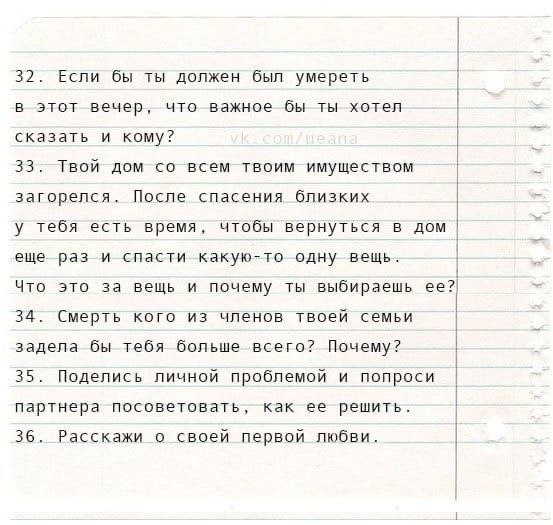 32. Если бы ты должен был умереть
в этот вечер, что важное бы ты хотел
сказать и кому?
vk.com/ueana
33. Твой дом со всем твоим имуществом
загорелся. После спасения близких
у тебя есть время, чтобы вернуться в дом
еще раз и спасти какую-то одну вещь.
Что это за вещь и почему ты выбираешь ее?
34. Смерть кого из членов твоей семьи
задела бы тебя больше всего? Почему?
35. Поделись личной проблемой и попроси
партнера посоветовать, как ее решить.
36. Расскажи о своей первой любви.